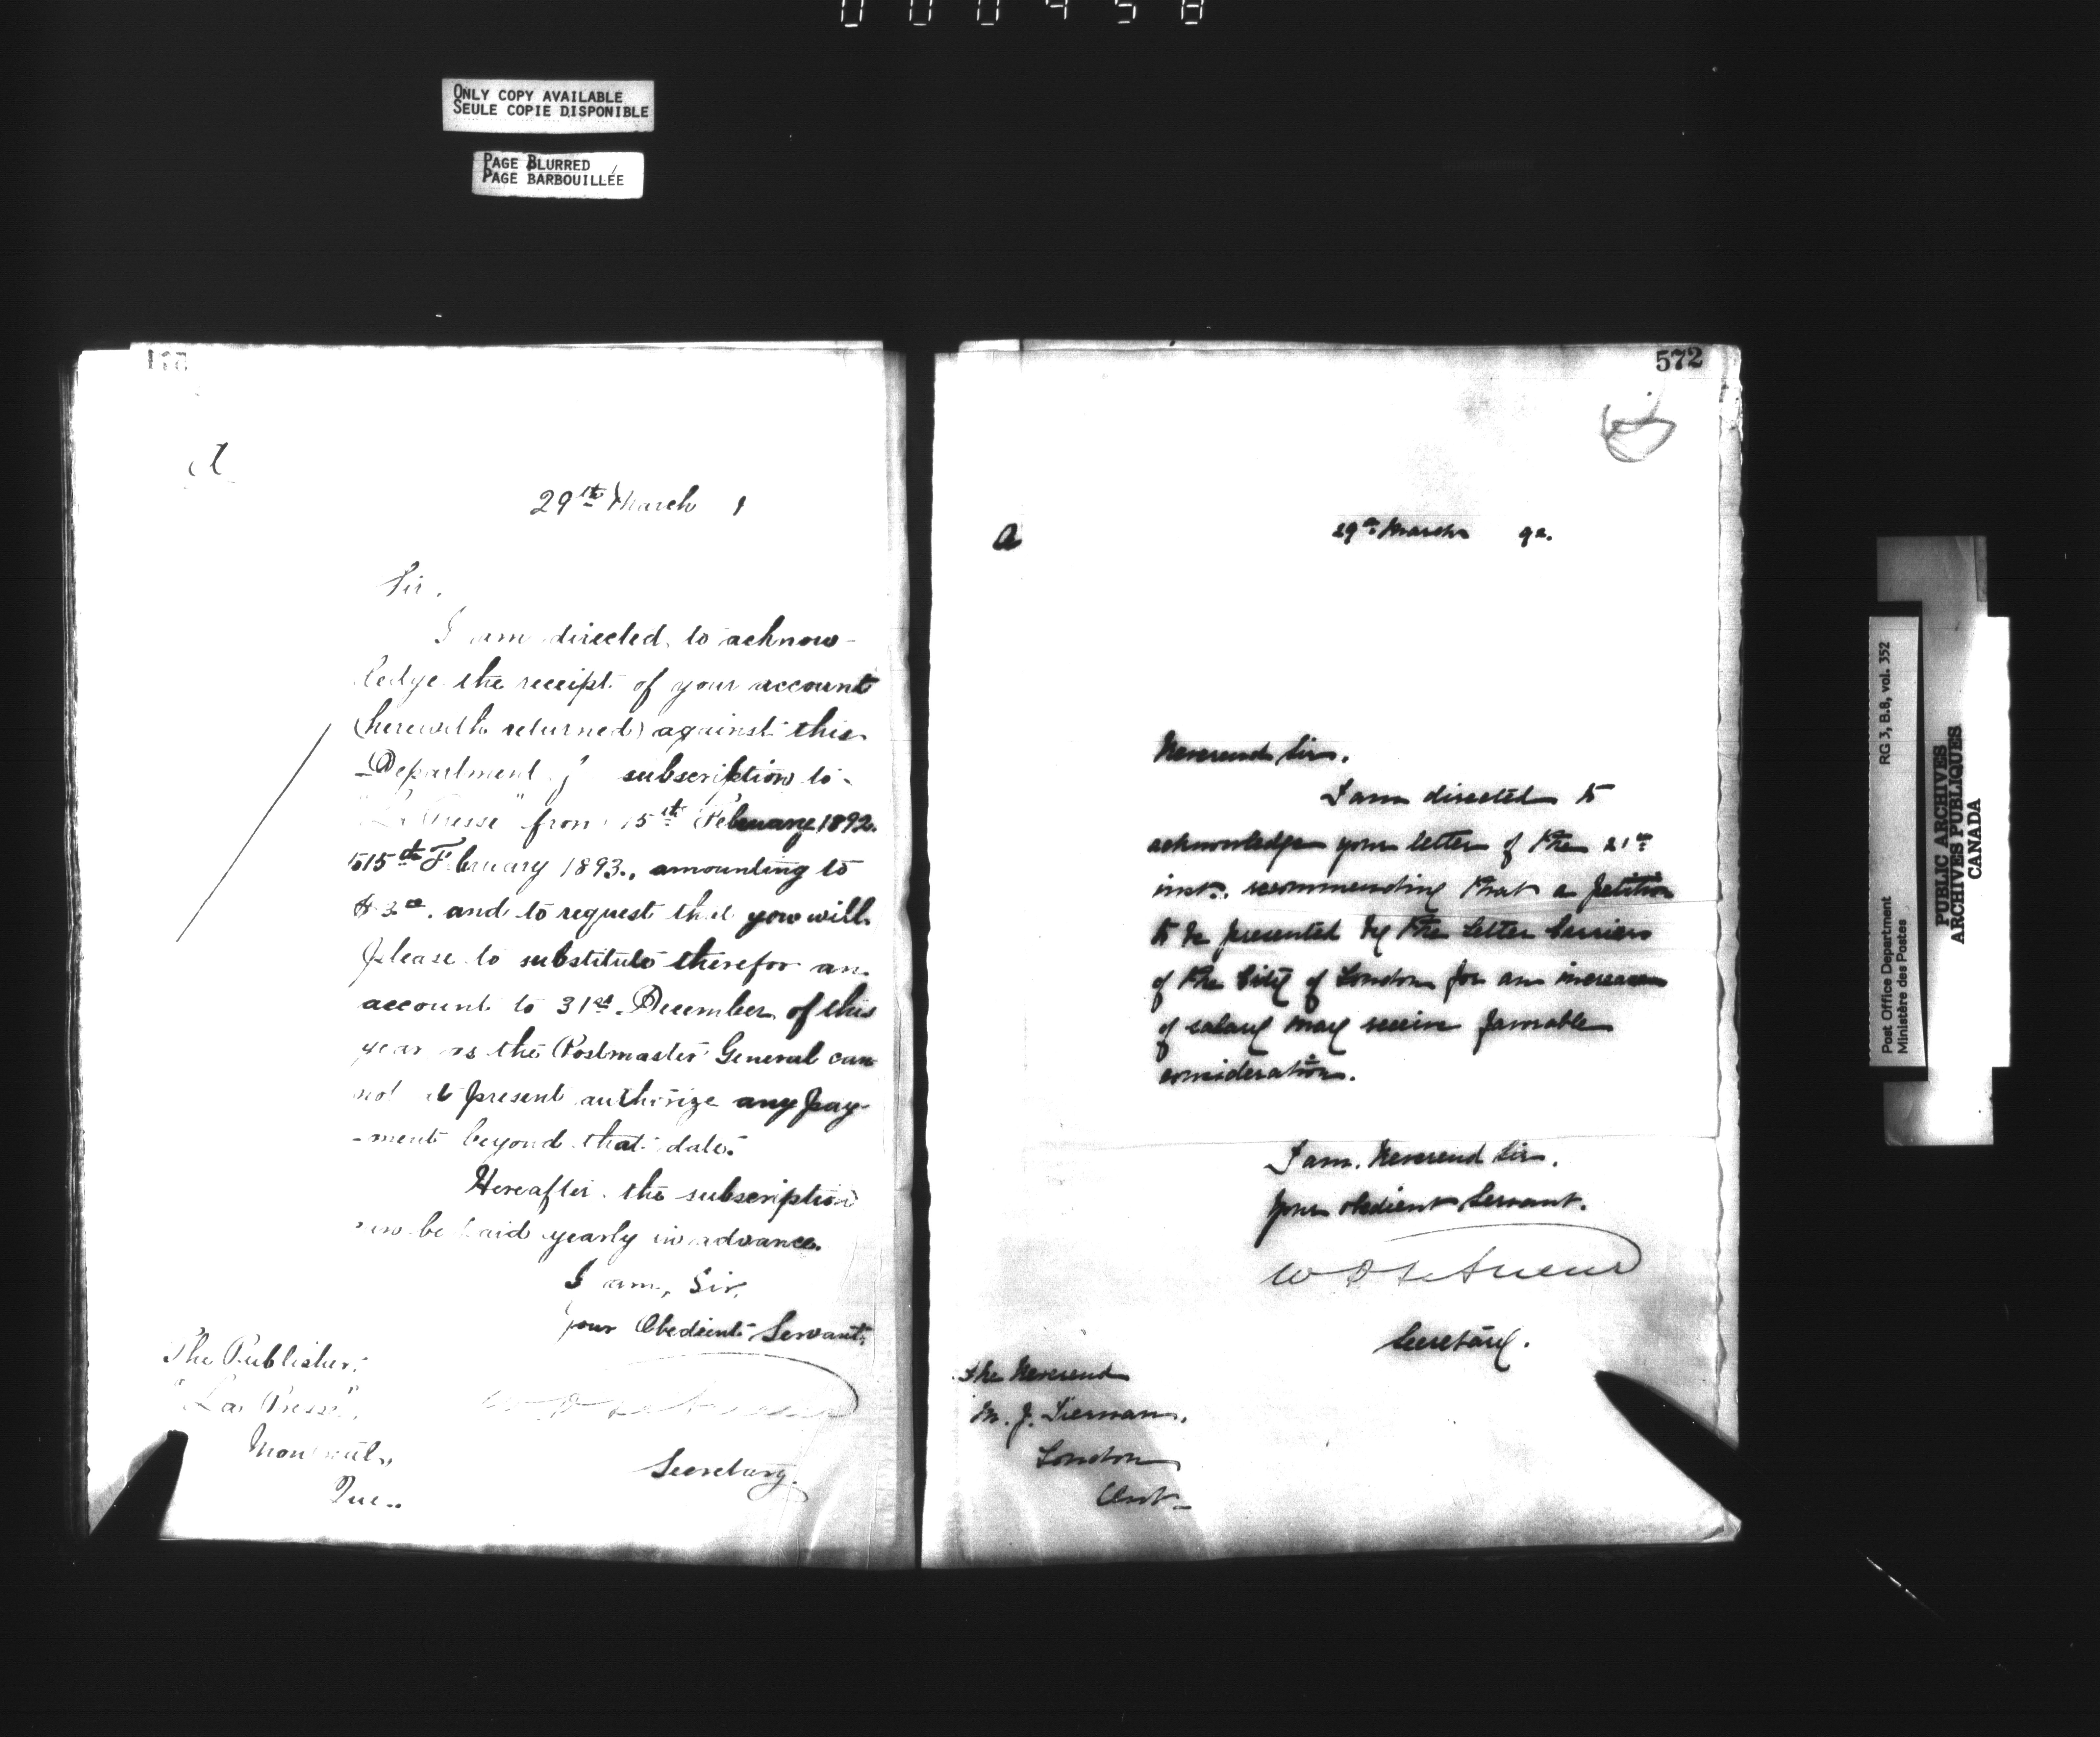 000458
ONLY COPY AVAILABLE
SEULE COPIE DISPONIBLE
PAGE BLURRED
PAGE BARBOUILLÉE
29th March
Sir,
I am directed to acknow-
ledge the receipt of your account
(herewith returned) against this
Department subscription to
"La Presse" from 15th February 1892
to 15th February 1893., amounting to
$3.00. and to request that you will
please to substitute therefor an
account to 31st December of this
year as the Postmaster General can
not at present authorize any pay-
-ment beyond that date.
Hereafter the subscription
can be paid yearly in advance.
I am, Sir,
Your Obedient Servant,
W D LeSueur
Secretary.
The Publisher,
"La Presse",
Montreal,
Que..
572
a
29th March 92.
Reverend Sir,
I am directed to
acknowledge your letter of the 21st
inst. recommending that a petition
to be presented by the Letter Carriers
of the City of London for an increase
of salary may receive favorable
consideration.
I am, Reverend Sir,
Your obedient Servant.
W D LeSueur
Secretary.
The Reverend
M. J. Tiernan,
London
Ont.
Post Office Department RG 3, B.8, vol. 352
Ministère des Postes
PUBLIC ARCHIVES
ARCHIVES PUBLIQUES
CANADA